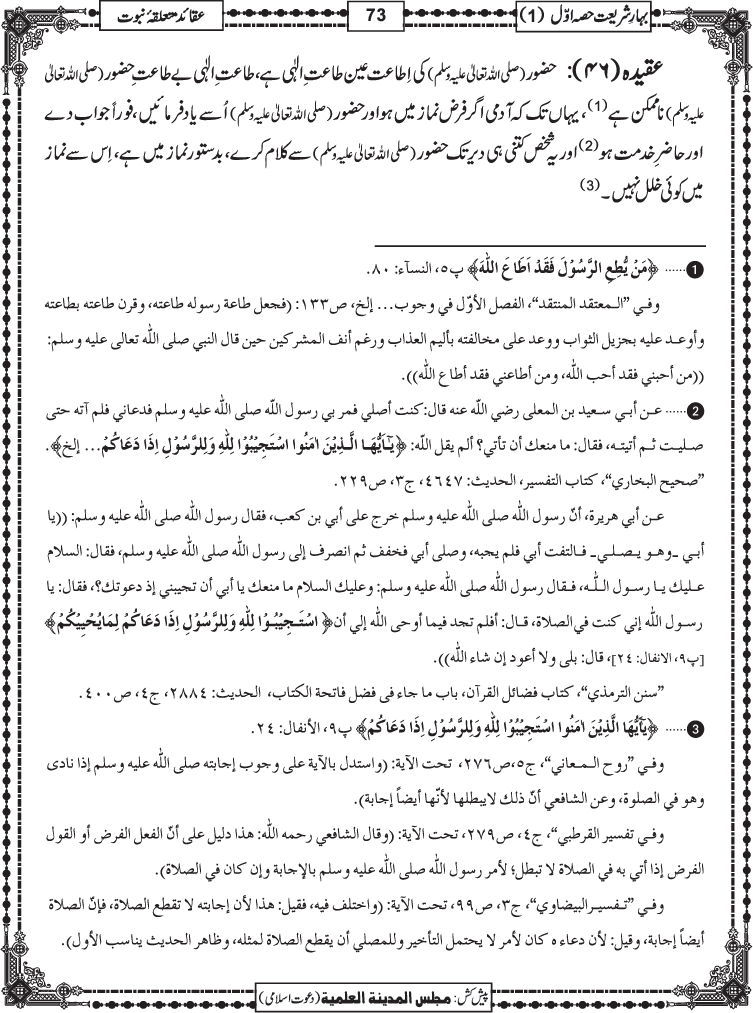 بہارِ شریعت حصہ اوّل (1)
73
عقائد متعلقۂ نبوت
عقیدہ (۴۶): حضور (صلی اللہ تعالیٰ علیہ وسلم) کی اِطاعت عین طاعتِ الٰہی ہے، طاعتِ الٰہی بے طاعتِ حضور (صلی اللہ تعالیٰ
علیہ وسلم) ناممکن ہے(1)، یہاں تک کہ آدمی اگر فرض نماز میں ہو اور حضور (صلی اللہ تعالیٰ علیہ وسلم) اُسے یاد فرمائیں، فوراً جواب دے
اور حاضرِ خدمت ہو(2) اور یہ شخص کتنی ہی دیر تک حضور (صلی اللہ تعالیٰ علیہ وسلم) سے کلام کرے، بدستور نماز میں ہے، اِس سے نماز
میں کوئی خلل نہیں۔(3)
1 ...... ﴿مَنْ يُّطِعِ الرَّسُوْلَ فَقَدْ اَطَاعَ اللّٰهَ﴾ پ٥، النسآء: ٨٠.
وفي ”المعتقد المنتقد“، الفصل الأوّل في وجوب... إلخ، ص١٣٣: (فجعل طاعة رسوله طاعته، وقرن طاعته بطاعته
وأوعد عليه بجزيل الثواب ووعد على مخالفته بأليم العذاب ورغم أنف المشركين حين قال النبي صلى اللّٰه تعالى عليه وسلم:
((من أحبني فقد أحب اللّٰه، ومن أطاعني فقد أطاع اللّٰه)).
2 ...... عن أبي سعيد بن المعلى رضي اللّٰه عنه قال: كنت أصلي فمر بي رسول اللّٰه صلى اللّٰه عليه وسلم فدعاني فلم آته حتى
صليت ثم أتيته، فقال: ما منعك أن تأتي؟ ألم يقل اللّٰه: ﴿يٰۤاَيُّهَا الَّذِيْنَ اٰمَنُوا اسْتَجِيْبُوْا لِلّٰهِ وَلِلرَّسُوْلِ اِذَا دَعَاكُمْ... إلخ﴾.
”صحيح البخاري“، كتاب التفسير، الحديث: ٤٦٤٧، ج٣، ص٢٢٩.
عن أبي هريرة، أنّ رسول اللّٰه صلى اللّٰه عليه وسلم خرج على أبي بن كعب، فقال رسول اللّٰه صلى اللّٰه عليه وسلم: ((يا
أبي ـ وهو يصلي ـ فالتفت أبي فلم يجبه، وصلى أبي فخفف ثم انصرف إلى رسول اللّٰه صلى اللّٰه عليه وسلم، فقال: السلام
عليك يا رسول اللّٰه، فقال رسول اللّٰه صلى اللّٰه عليه وسلم: وعليك السلام ما منعك يا أبي أن تجيبني إذ دعوتك؟، فقال: يا
رسول اللّٰه إني كنت في الصلاة، قال: أفلم تجد فيما أوحى اللّٰه إلي أن ﴿اسْتَجِيْبُوْا لِلّٰهِ وَلِلرَّسُوْلِ اِذَا دَعَاكُمْ لِمَا يُحْيِيْكُمْ﴾
[پ٩، الانفال: ٢٤]، قال: بلى ولا أعود إن شاء اللّٰه)).
”سنن الترمذي“، كتاب فضائل القرآن، باب ما جاء في فضل فاتحة الكتاب، الحديث: ٢٨٨٤، ج٤، ص٤٠٠.
3 ...... ﴿يٰۤاَيُّهَا الَّذِيْنَ اٰمَنُوا اسْتَجِيْبُوْا لِلّٰهِ وَلِلرَّسُوْلِ اِذَا دَعَاكُمْ﴾ پ٩، الأنفال: ٢٤.
وفي ”روح المعاني“، ج٥، ص٢٧٦، تحت الآية: (واستدل بالآية على وجوب إجابته صلى اللّٰه عليه وسلم إذا نادى
وهو في الصلوة، وعن الشافعي أنّ ذلك لا يبطلها لأنّها أيضاً إجابة).
وفي تفسير القرطبي“، ج٤، ص٢٧٩، تحت الآية: (وقال الشافعي رحمه اللّٰه: هذا دليل على أنّ الفعل الفرض أو القول
الفرض إذا أتي به في الصلاة لا تبطل؛ لأمر رسول اللّٰه صلى اللّٰه عليه وسلم بالإجابة وإن كان في الصلاة).
وفي ”تفسير البيضاوي“، ج٣، ص٩٩، تحت الآية: (واختلف فيه، فقيل: هذا لأن إجابته لا تقطع الصلاة، فإنّ الصلاة
أيضاً إجابة، وقيل: لأن دعاءه كان لأمر لا يحتمل التأخير وللمصلي أن يقطع الصلاة لمثله، وظاهر الحديث يناسب الأول).
پیش کش: مجلس المدينة العلمية (دعوتِ اسلامی)